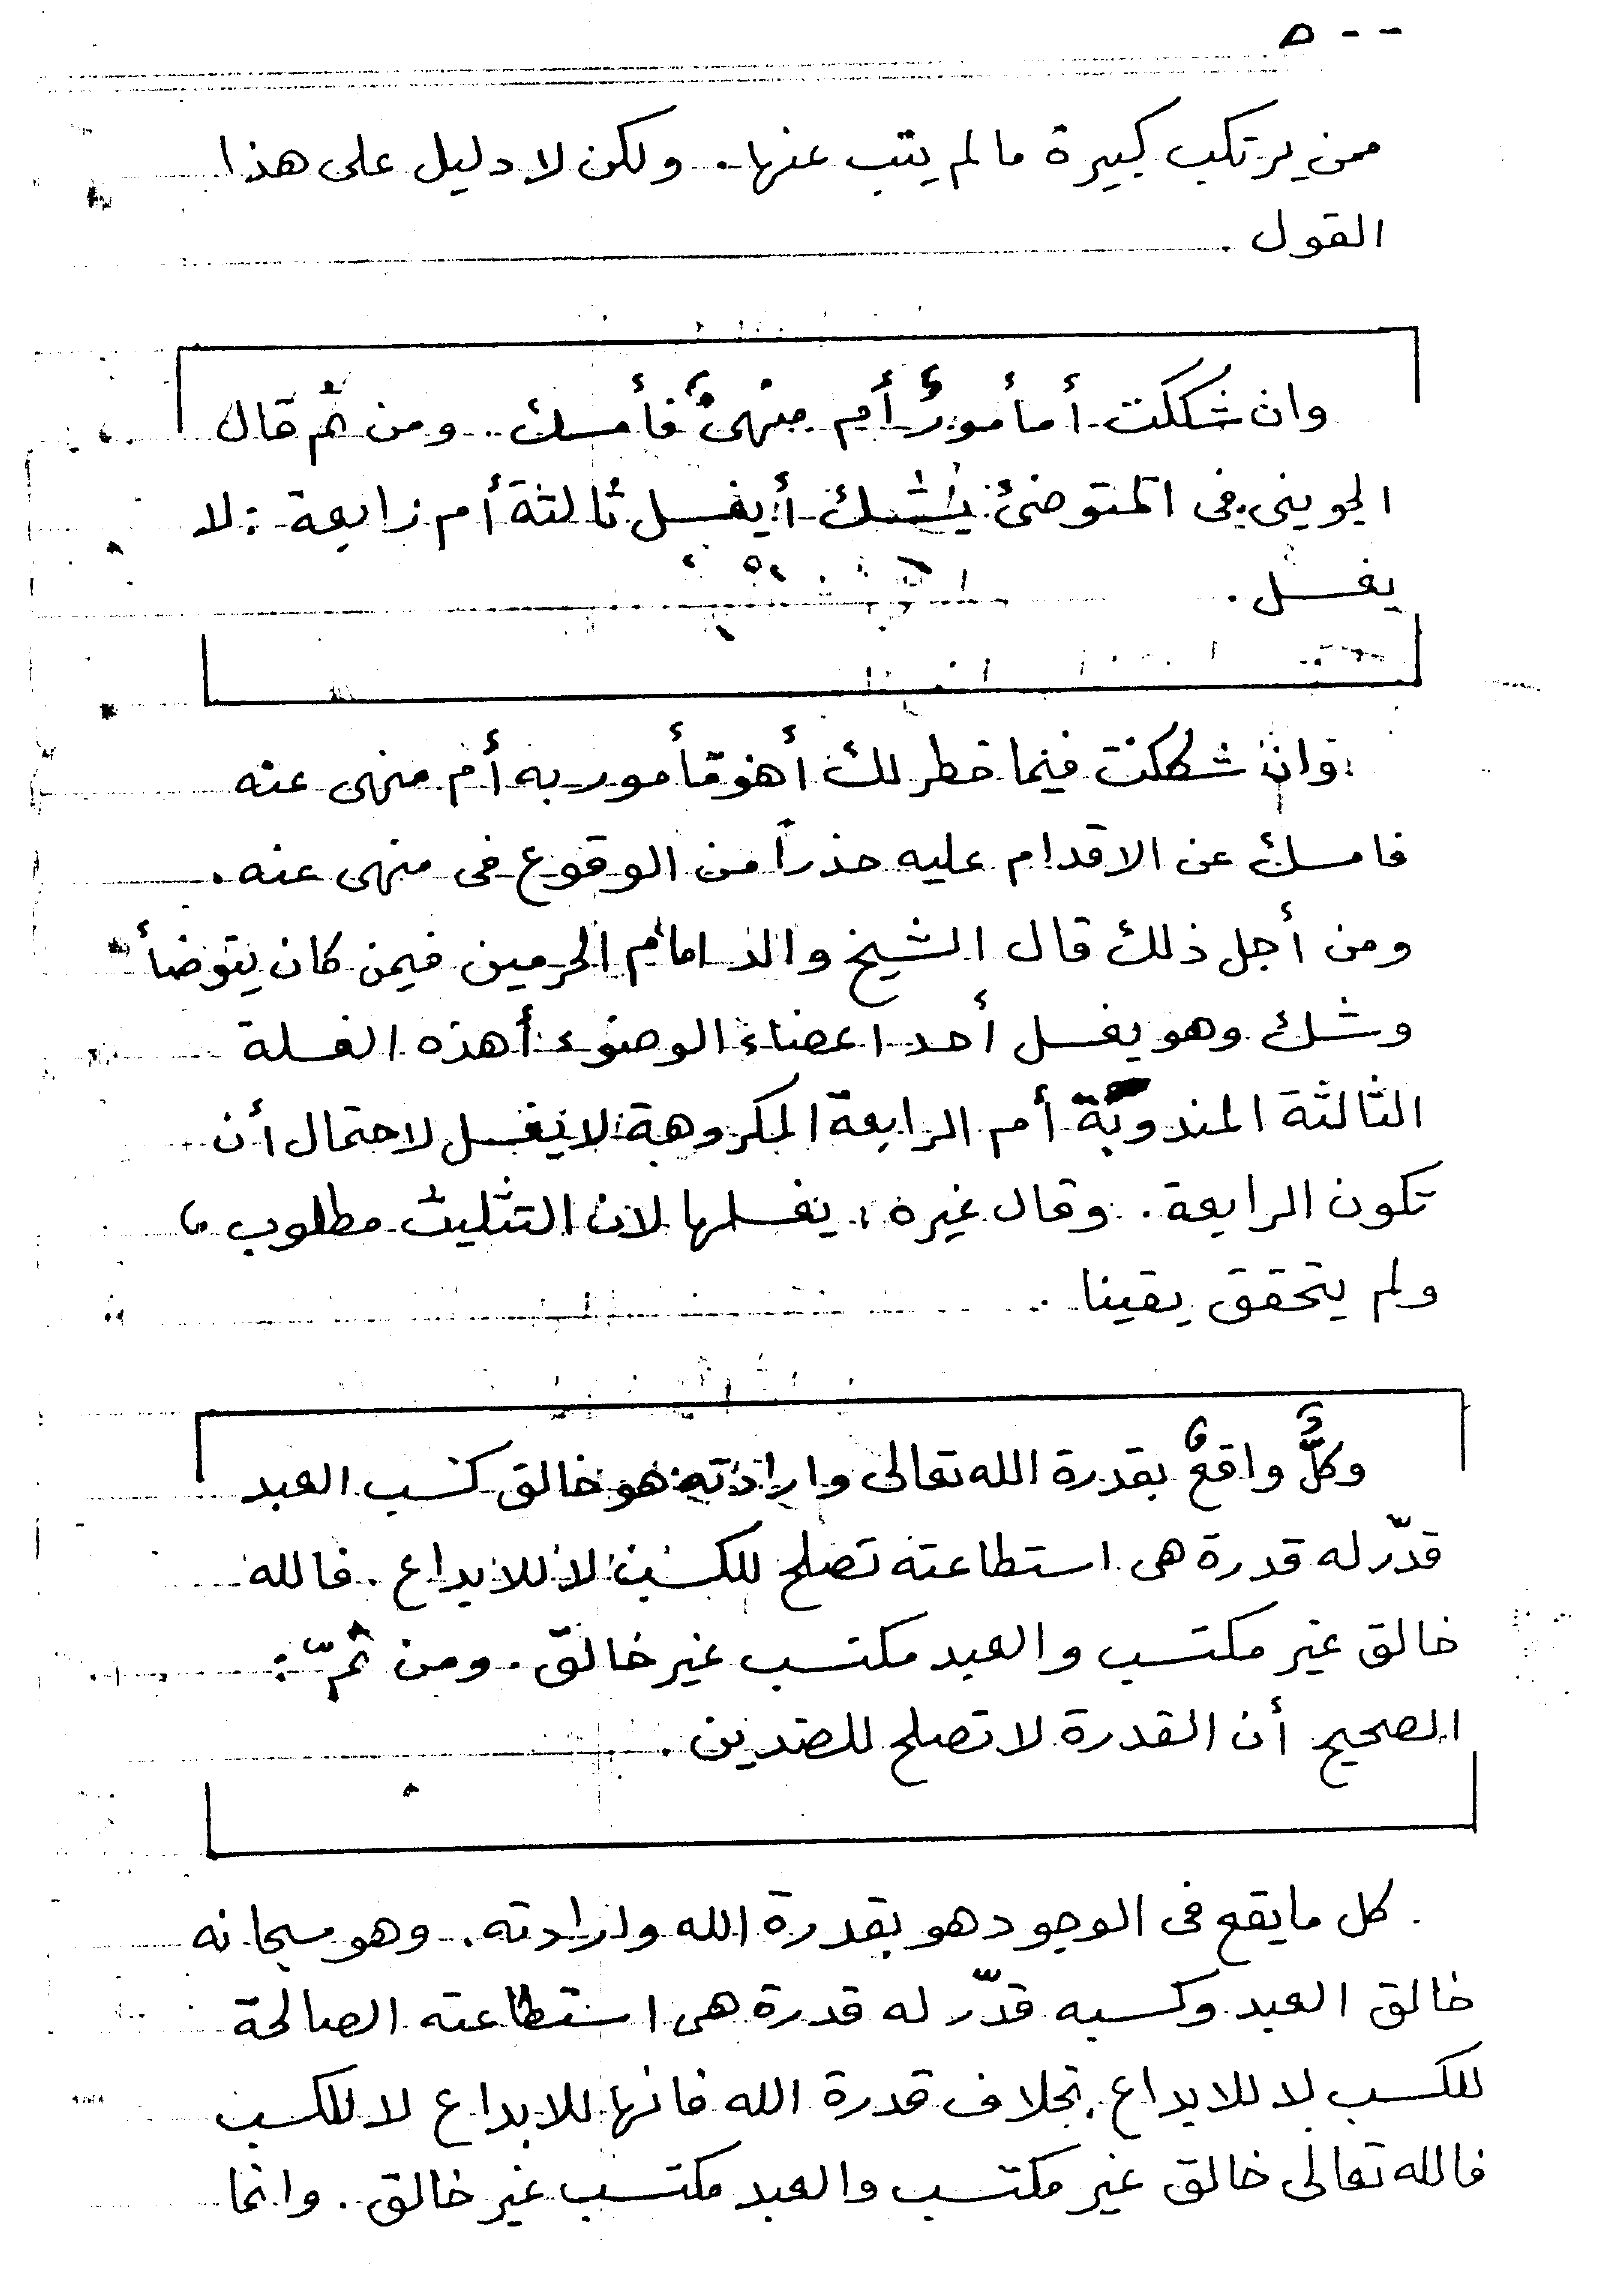 ٥٠٠
ممن يرتكب كبيرة ما لم يتب عنها. ولكن لا دليل على هذا
القول.
وان شككت أمأمورٌ أم منهىٌ فأمسك. ومن ثم قال
الجوينى فى المتوضئ يشك أيغسل ثالثة أم رابعة: لا
يغسل.
وان شككت فيما خطر لك أهو مأمور به أم منهى عنه
فامسك عن الاقدام عليه حذراً من الوقوع فى منهى عنه.
ومن أجل ذلك قال الشيخ والد امام الحرمين فيمن كان يتوضأ
وشك وهو يغسل أحد اعضاء الوضوء أهذه الغسلة
الثالثة المندوبة أم الرابعة المكروهة لا يغسل لاحتمال أن
تكون الرابعة. وقال غيره: يغسلها لان التثليث مطلوب،
ولم يتحقق يقينا.
وكلٌّ واقعٌ بقدرة الله تعالى وارادته هو خالق كسب العبد
قدّر له قدرة هى استطاعته تصلح للكسب لا للابداع. فالله
خالق غير مكتسب والعبد مكتسب غير خالق. ومن ثمّ:
الصحيح أن القدرة لا تصلح للضدين.
كل ما يقع فى الوجود هو بقدرة الله وارادته. وهو سبحانه
خالق العبد وكسبه قدّر له قدرة هى استطاعته الصالحة
للكسب لا للابداع. بخلاف قدرة الله فانها للابداع لا للكسب
فالله تعالى خالق غير مكتسب والعبد مكتسب غير خالق. وانما